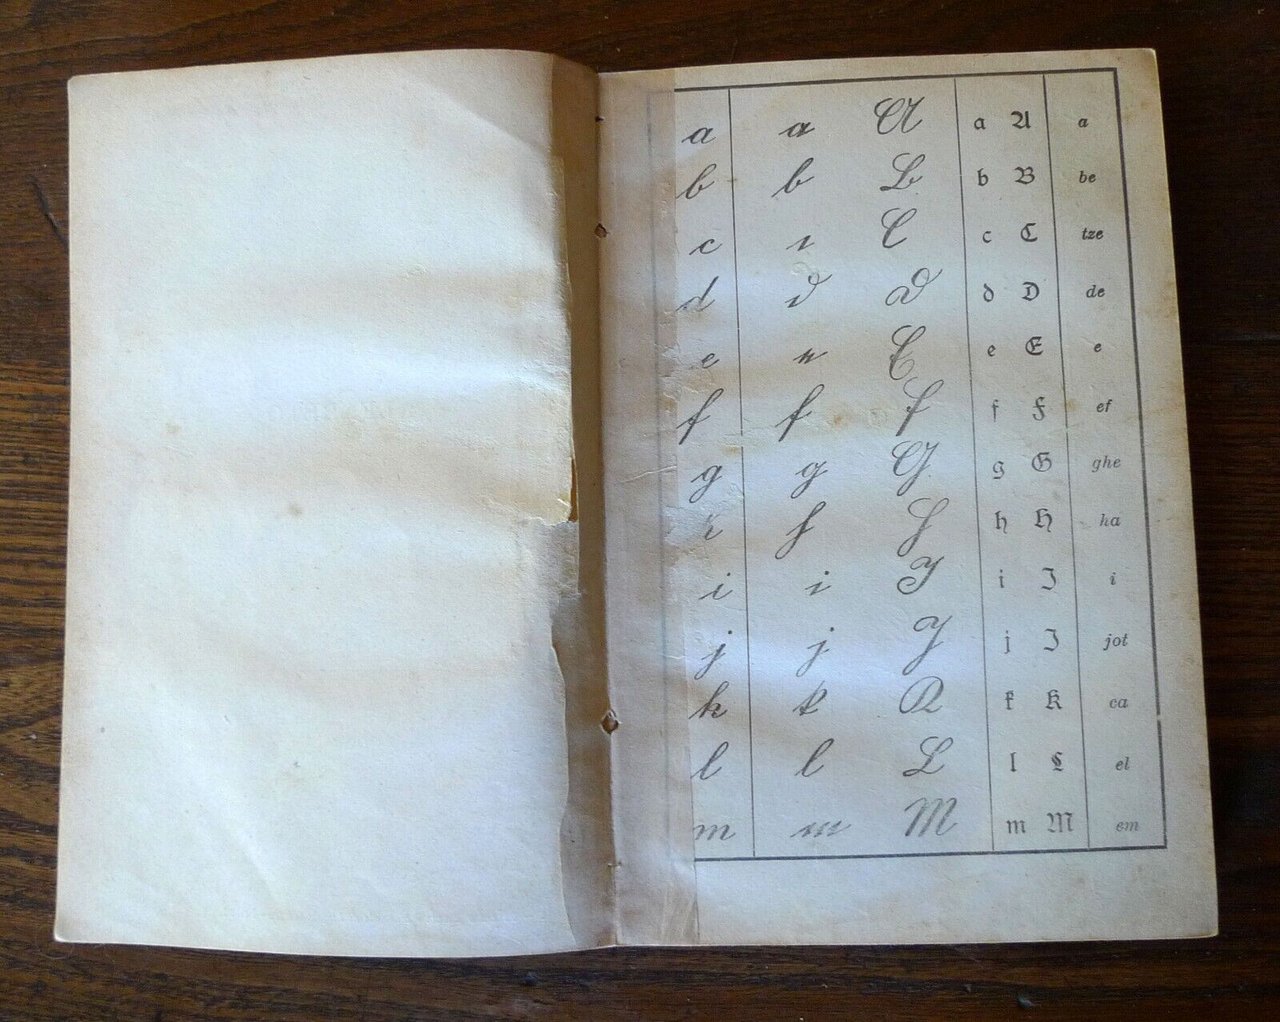 a a A a A a
b b B b B be
c c C c C tze
d d D d D de
e e E e E e
f f F f F ef
g g G g G ghe
h H h H ha
i i I i I i
j j J j J jot
k k K k K ca
l l L l L el
m m M m M em